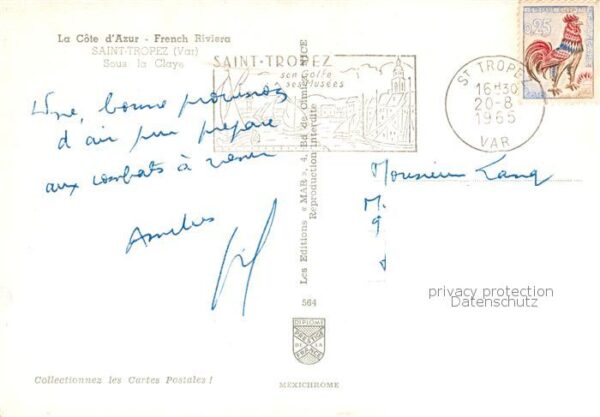 La Côte d'Azur - French Riviera
SAINT-TROPEZ (Var)
Sous la Claye
SAINT-TROPEZ
son golfe
ses musées
ST TROPEZ
16H30
20-8
1965
VAR
0,25
Une, bonne provision
d'air pur prépare
aux combats à venir
Amitiés
Monsieur Lang
M.
Les Editions « MAR », 4, Bd de Cimiez, NICE
Reproduction Interdite
564
DIPLOME
PRESTIGE
DE LA
FRANCE
MEXICHROME
Collectionnez les Cartes Postales !
privacy protection
Datenschutz